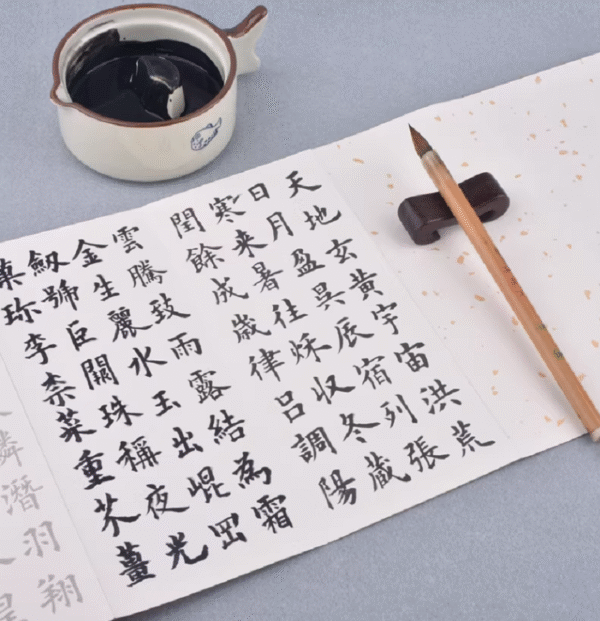 天地玄黃宇宙洪荒
日月盈昃辰宿列張
寒来暑往秋收冬藏
閏餘成歲律吕調陽
雲騰致雨露結為霜
金生麗水玉出崐岡
劒號巨闕珠稱夜光
菓珍李柰菜重芥薑
鱗潛羽翔